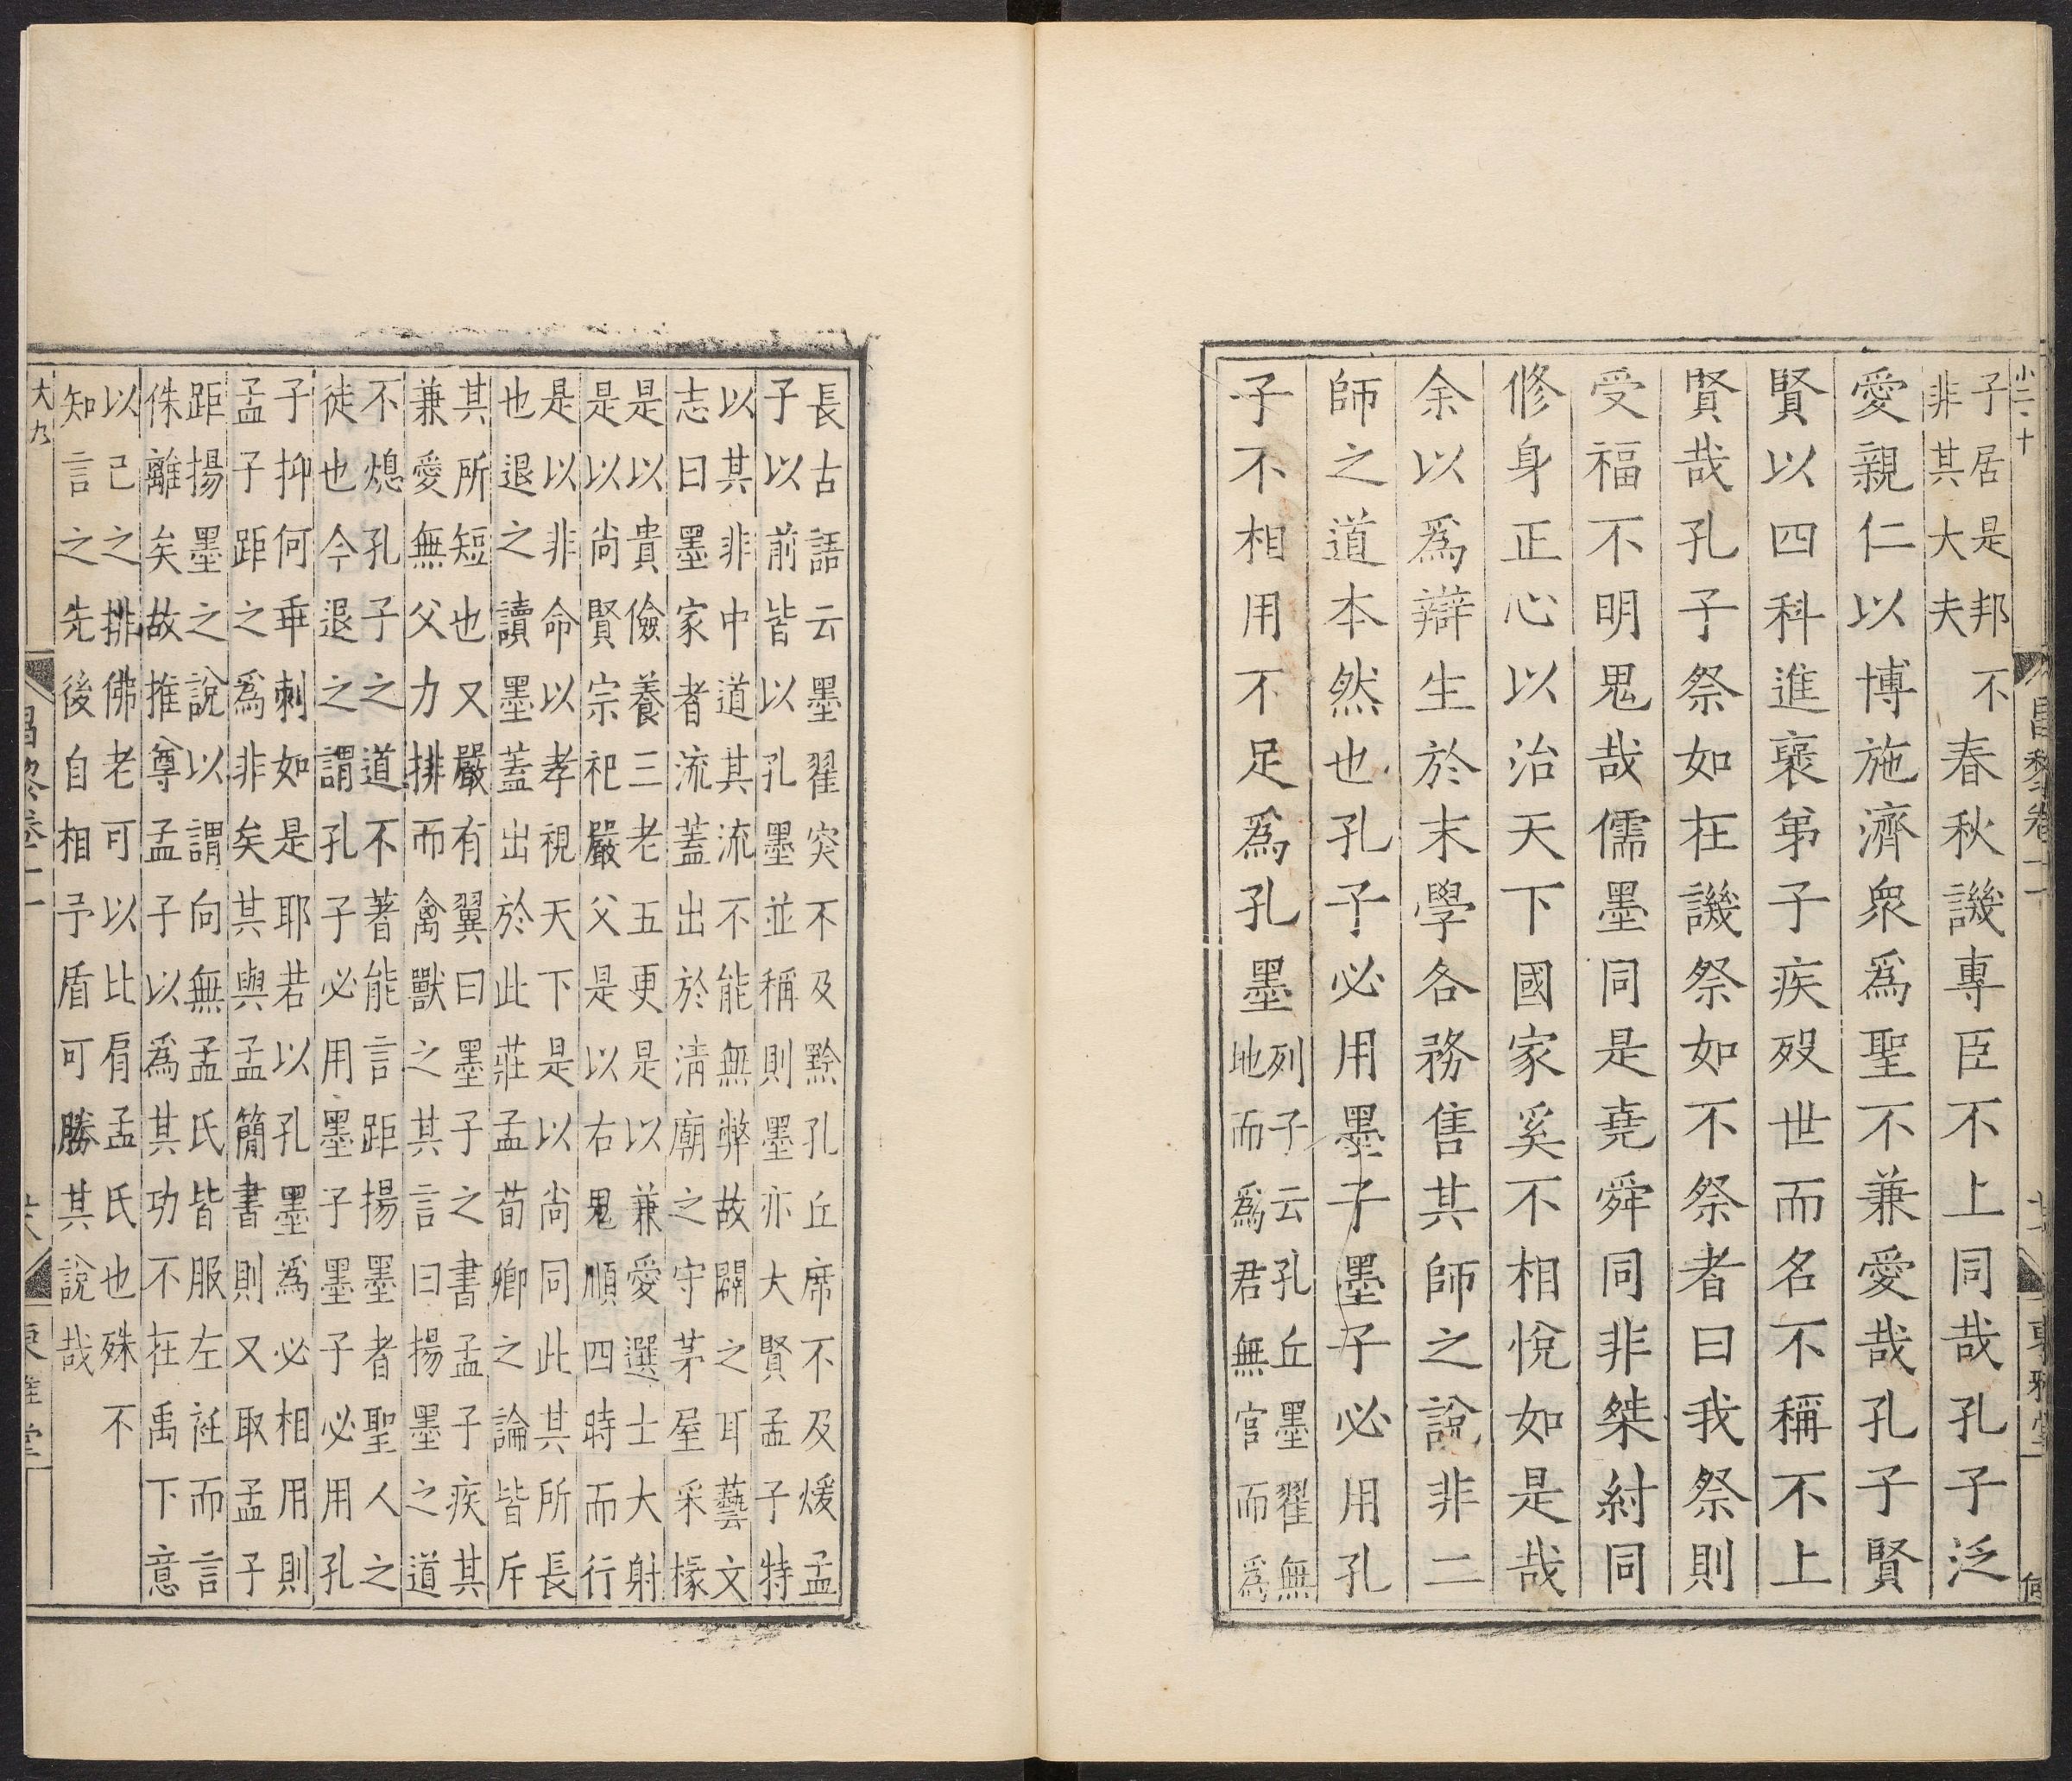 小二十
子居是邦不
非其大夫
春秋譏專臣不上同哉孔子泛
愛親仁以博施濟衆爲聖不兼愛哉孔子賢
賢以四科進褒弟子疾歿世而名不稱不上
賢哉孔子祭如在譏祭如不祭者曰我祭則
受福不明鬼哉儒墨同是堯舜同非桀紂同
修身正心以治天下國家奚不相悅如是哉
余以爲辯生於末學各務售其師之說非二
師之道本然也孔子必用墨子墨子必用孔
子不相用不足爲孔墨
列子云孔丘墨翟無
地而爲君無官而爲
長古語云墨翟突不及黔孔丘席不及煖孟
子以前皆以孔墨並稱則墨亦大賢孟子特
以其非中道其流不能無弊故闢之耳藝文
志曰墨家者流蓋出於淸廟之守茅屋采椽
是以貴儉養三老五更是以兼愛選士大射
是以尚賢宗祀嚴父是以右鬼順四時而行
是以非命以孝視天下是以尚同此其所長
也退之讀墨蓋出於此莊孟荀卿之論皆斥
其所短也又嚴有翼曰墨子之書孟子疾其
兼愛無父力排而禽獸之其言曰揚墨之道
不熄孔子之道不著能言距揚墨者聖人之
徒也今退之謂孔子必用墨子墨子必用孔
子抑何乖剌如是耶若以孔墨爲必相用則
孟子距之爲非矣其與孟簡書則又取孟子
距揚墨之說以謂向無孟氏皆服左衽而言
侏離矣故推尊孟子以爲其功不在禹下意
以己之排佛老可以比肩孟氏也殊不
知言之先後自相予盾可勝其說哉
大九
昌黎卷十一
東雅堂